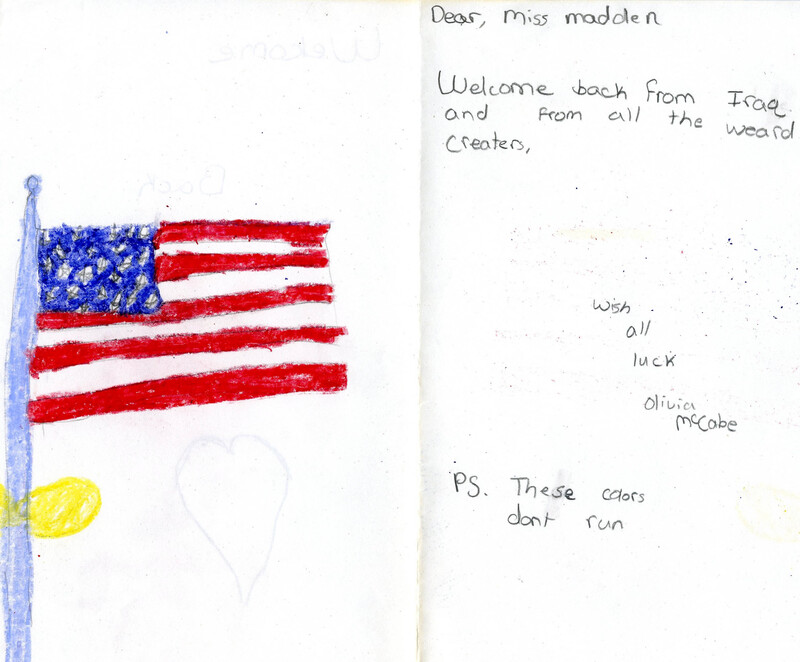 Welcome
Back
Dear, miss madden
Welcome back from Iraq
and from all the weard
creaters,
wish
all
luck
olivia
mcCabe
PS. These colors
dont run